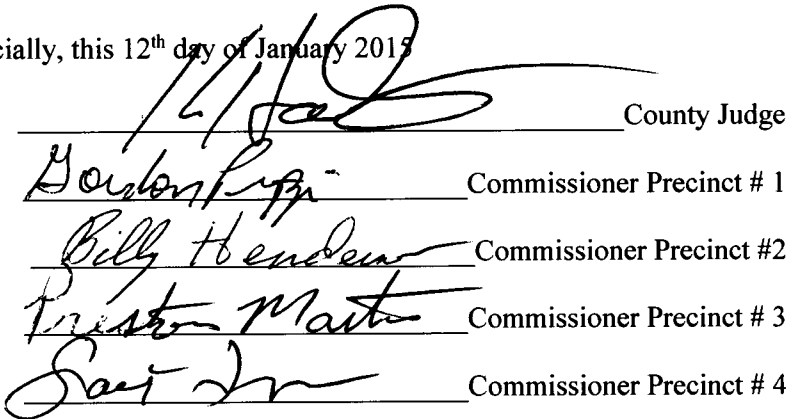 cially, this 12th day of January 2015
County Judge
Gordon Commissioner Precinct # 1
Billy Henderson Commissioner Precinct #2
Preston Martin Commissioner Precinct # 3
Commissioner Precinct # 4